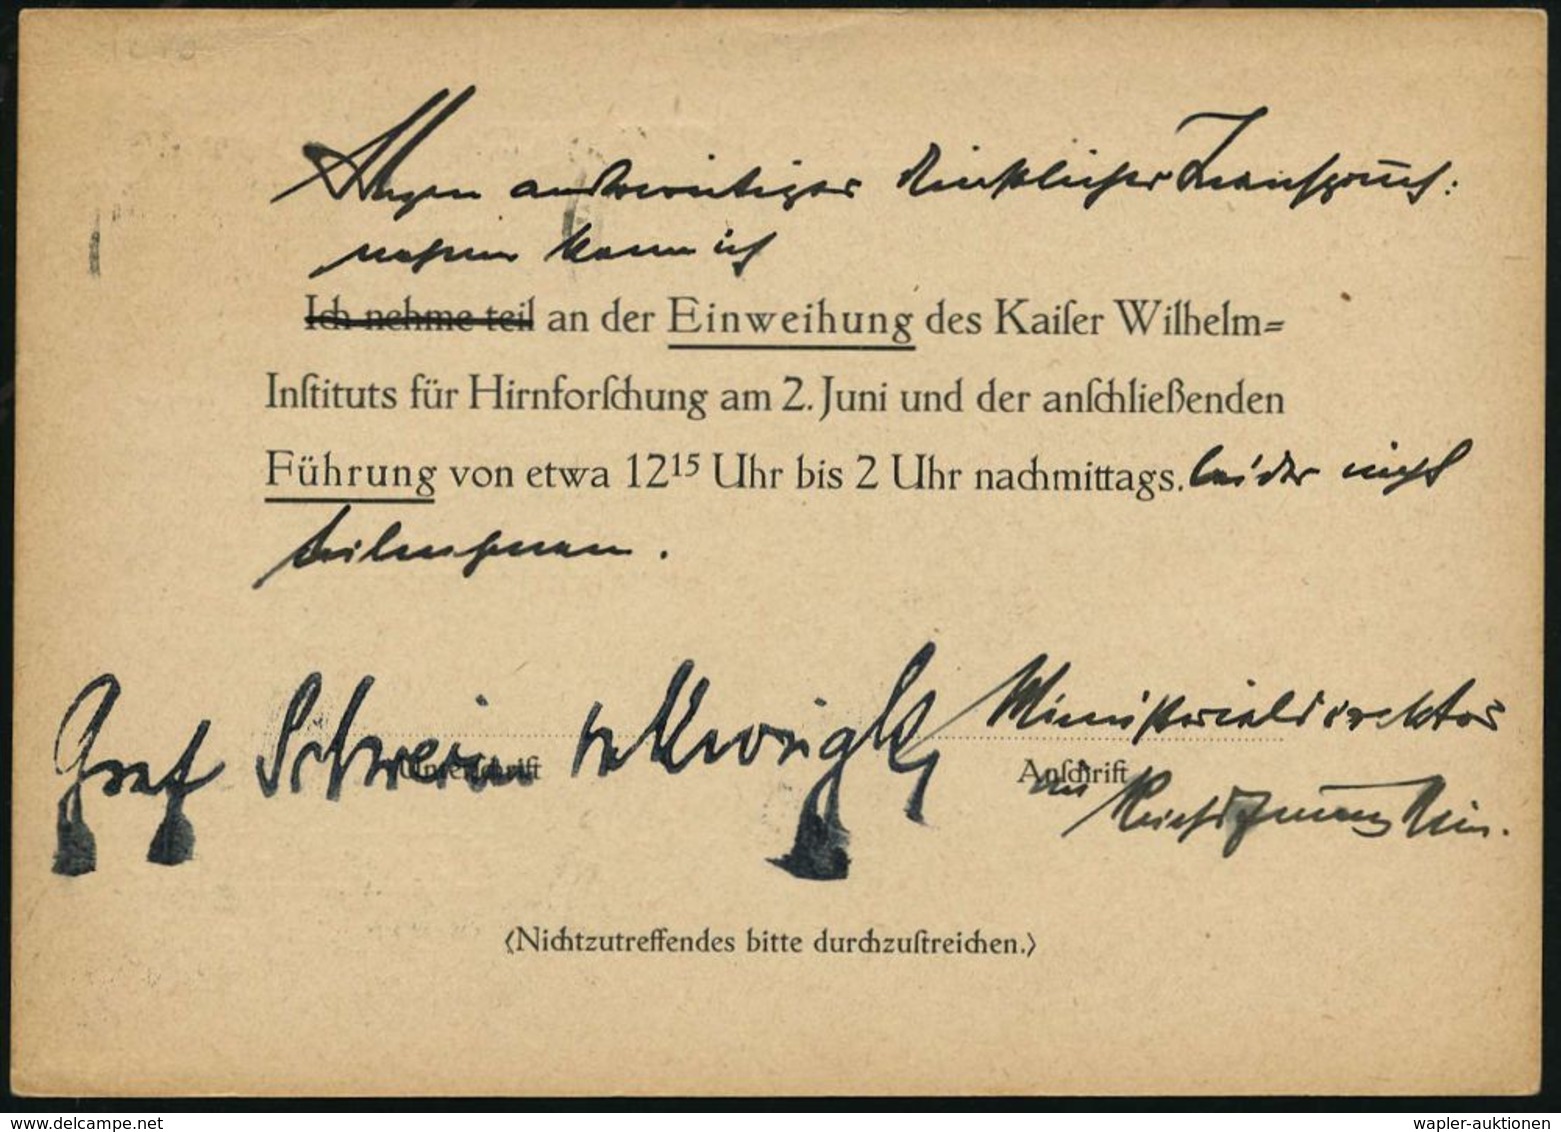 Wegen anderweitiger dienstlicher Inanspruch:
nahme kann ich
Ich nehme teil an der Einweihung des Kaiſer Wilhelm=
Inſtituts für Hirnforſchung am 2. Juni und der anſchließenden
Führung von etwa 12¹⁵ Uhr bis 2 Uhr nachmittags. leider nicht
teilnehmen.
Graf Schwerin v Krosigk, Ministerialdirektor
Unterſchrift Anſchrift
im Reichsfinanzmin.
(Nichtzutreffendes bitte durchzuſtreichen.)
wapler-auktionen